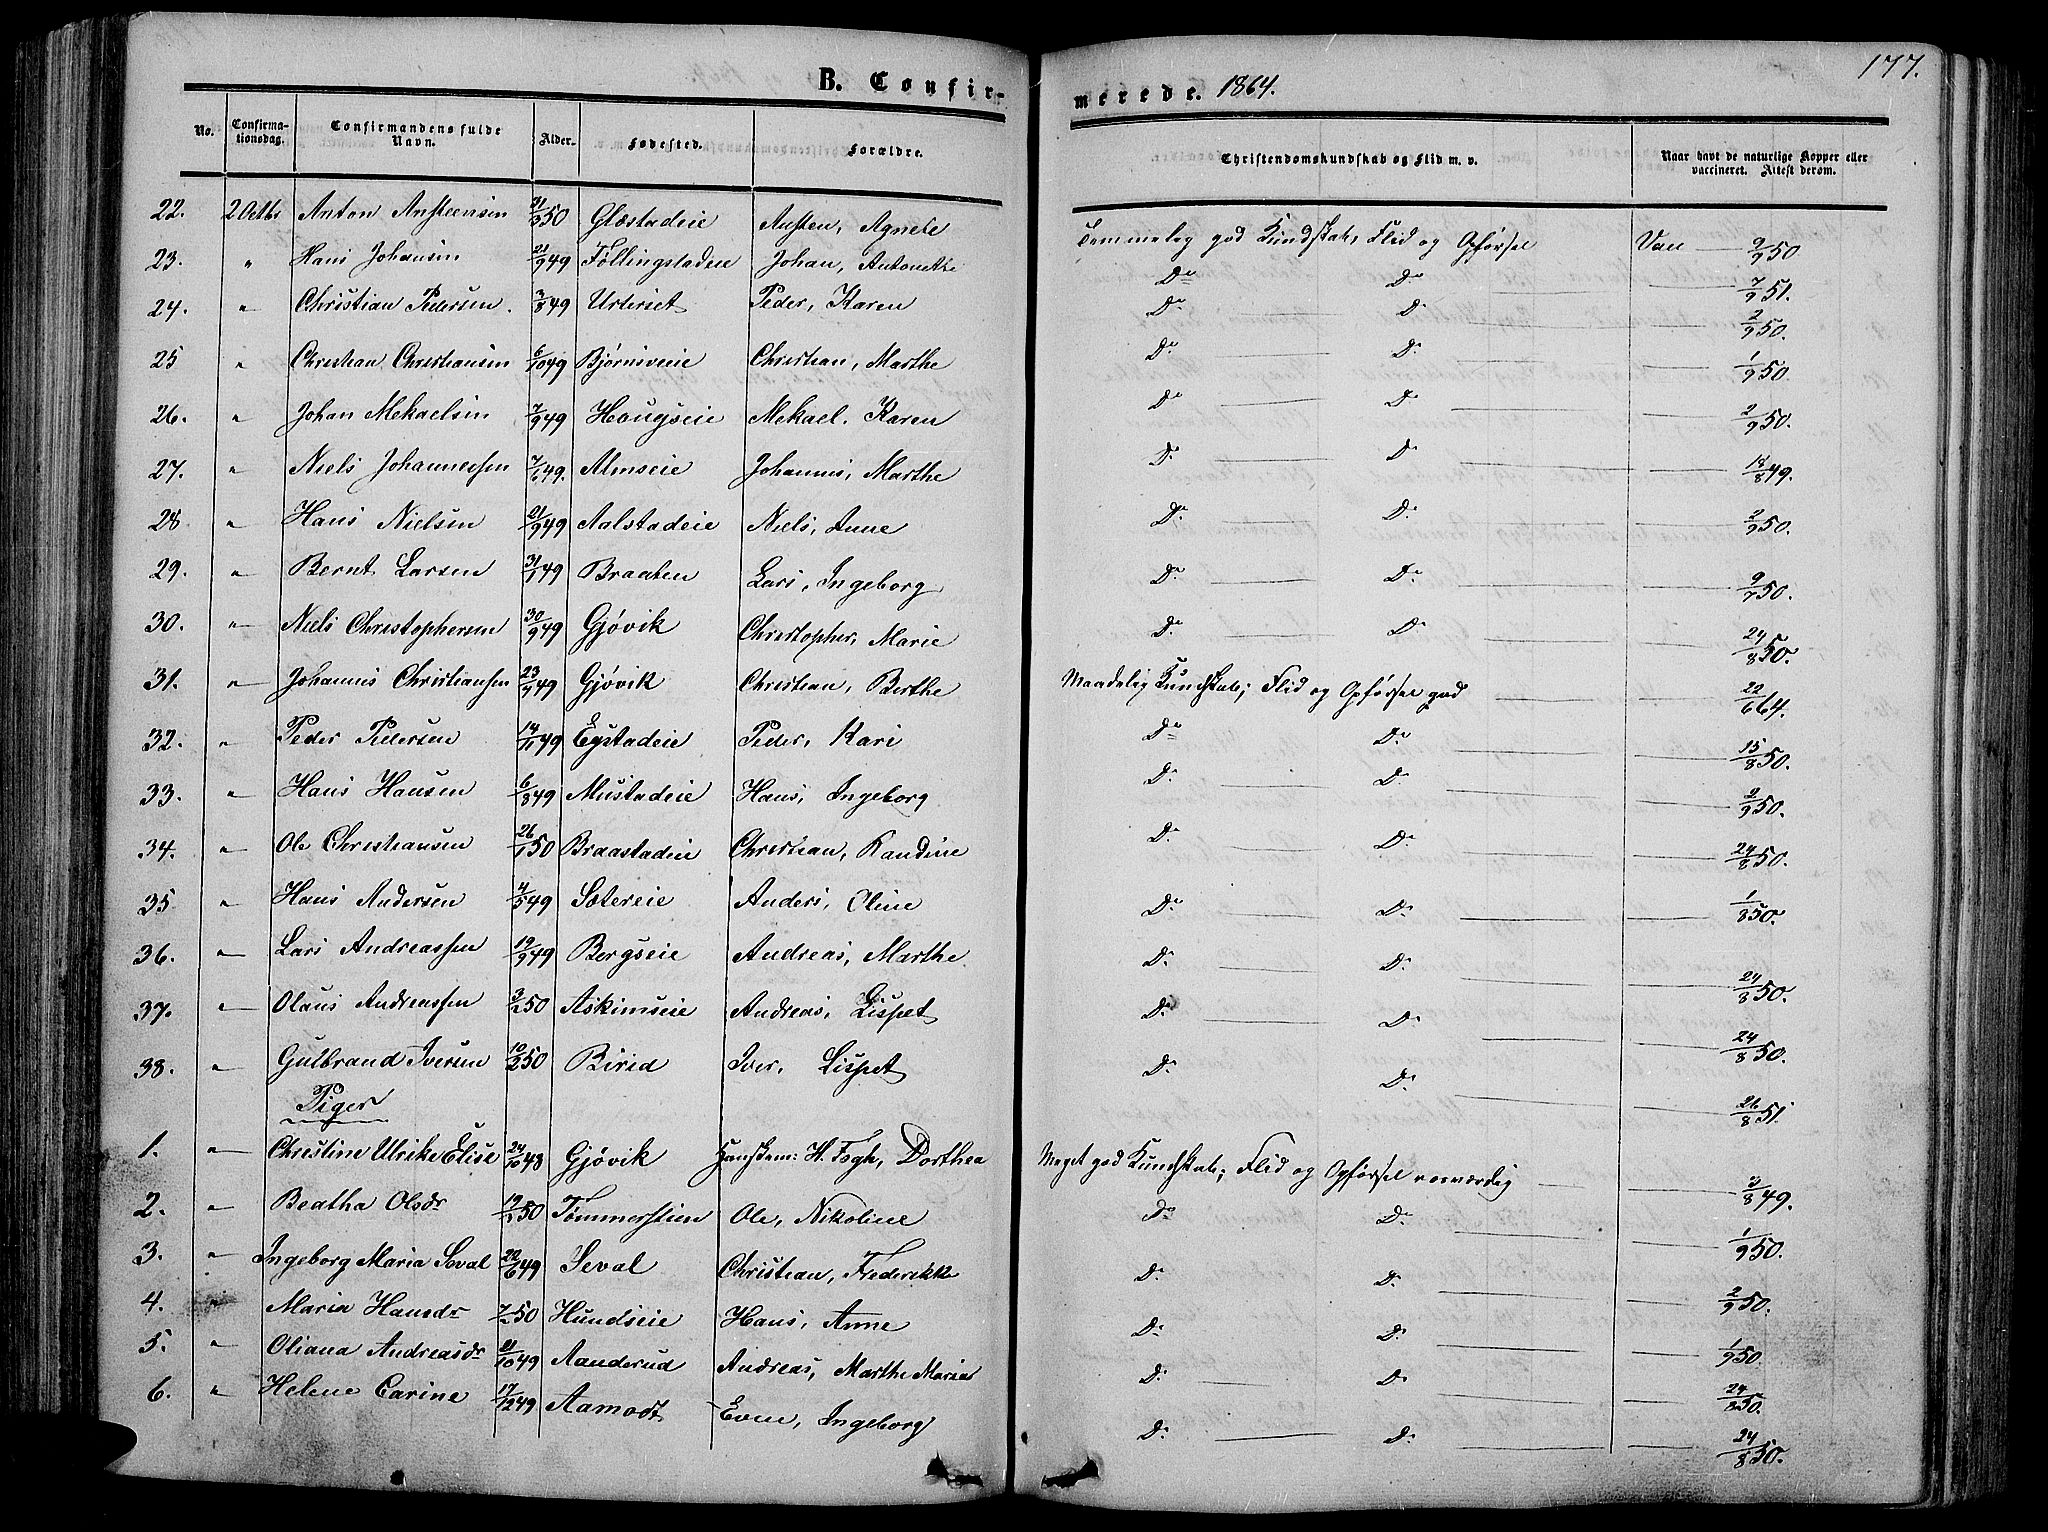 177.
B. Confirmerede. 1864.
No. Confirmationsdag. Confirmandens fulde Navn. Alder. Fødested. Forældre. Christendomskundskab og Flid m. v. Naar havt de naturlige Kopper eller vaccineret. Attest derom.
22. 2 Octbr Anton Ansteensen 21/3 50 Glæstadeie Ansten, Agnete Temmelig god Kundskab, Flid og Opførsel Vac 9/9 50
23. " Hans Johansen 21/9 49 Føllingstadeie Johan, Antonette Do Do 7/9 51.
24. " Christian Pedersen. 3/8 49 Urterset Peder, Karen Do Do 2/9 50.
25 " Christian Christiansen 6/10 49 Bjørnsveie Christian, Marthe Do Do 1/9 50.
26. " Johan Mekaelsen 7/9 49 Hougseie Mekael, Karen Do Do 2/9 50.
27. " Niels Johannessen 7/6 49. Almseie Johannes, Marthe Do Do 18/8 49.
28 " Hans Nielsen 21/9 49 Aalstadeie Niels, Anne Do Do 2/9 50.
29. " Bernt Larsen 31/1 49 Braaten Lars, Ingeborg Do Do 9/7 50.
30. " Niels Christophersen 30/9 49 Gjøvik Christopher, Marie Do Do 24/8 50.
31. " Johannes Christiansen 23/9 49 Gjøvik Christian, Berthe Maadelig Kundskab; Flid og Opførsel god 22/6 64.
32. " Peder Pedersen 14/11 49 Eystadeie Peder, Kari Do Do 15/8 50.
33. " Hans Hansen 6/8 49 Mustadeie Hans, Ingeborg Do Do 2/9 50.
34. " Ole Christiansen 26/1 50 Braastadeie Christian, Randine Do Do 24/8 50.
35 " Hans Andersen 4/5 49 Sætereie Anders, Oline Do Do 1/8 50.
36. " Lars Andreassen 19/9 49 Bergseie Andreas, Marthe. Do Do 24/8 50.
37. " Olaus Andreassen 3/2 50 Askimseie Andreas, Lispet Do Do 24/8 50.
38. " Gulbrand Iversen 10/2 50 Birid Iver, Lispet Do Do 26/8 51.
Piger
1. " Christine Ulrike Elise 24/10 48 Gjøvik H. Fogh, Dorthea Meget god Kundskab; Flid og Opførsel rosværdig 3/8 49.
2. " Beatha Olsdr 19/2 50 Tømmerstien Ole, Nikoline Do Do 1/9 50.
3. " Ingeborg Maria Seval 22/6 49 Seval Christian, Frederikke Do Do 2/9 50.
4. " Maria Hansdr 7/2 50 Hundseie Hans, Anne Do Do 1/9 50.
5. " Oliana Andreasdr 21/10 49 Aanderud Andreas, Marthe Maria Do Do 24/8 50.
6. " Helene Carine 17/12 49 Aamodt Even, Ingeborg Do Do 24/8 50.